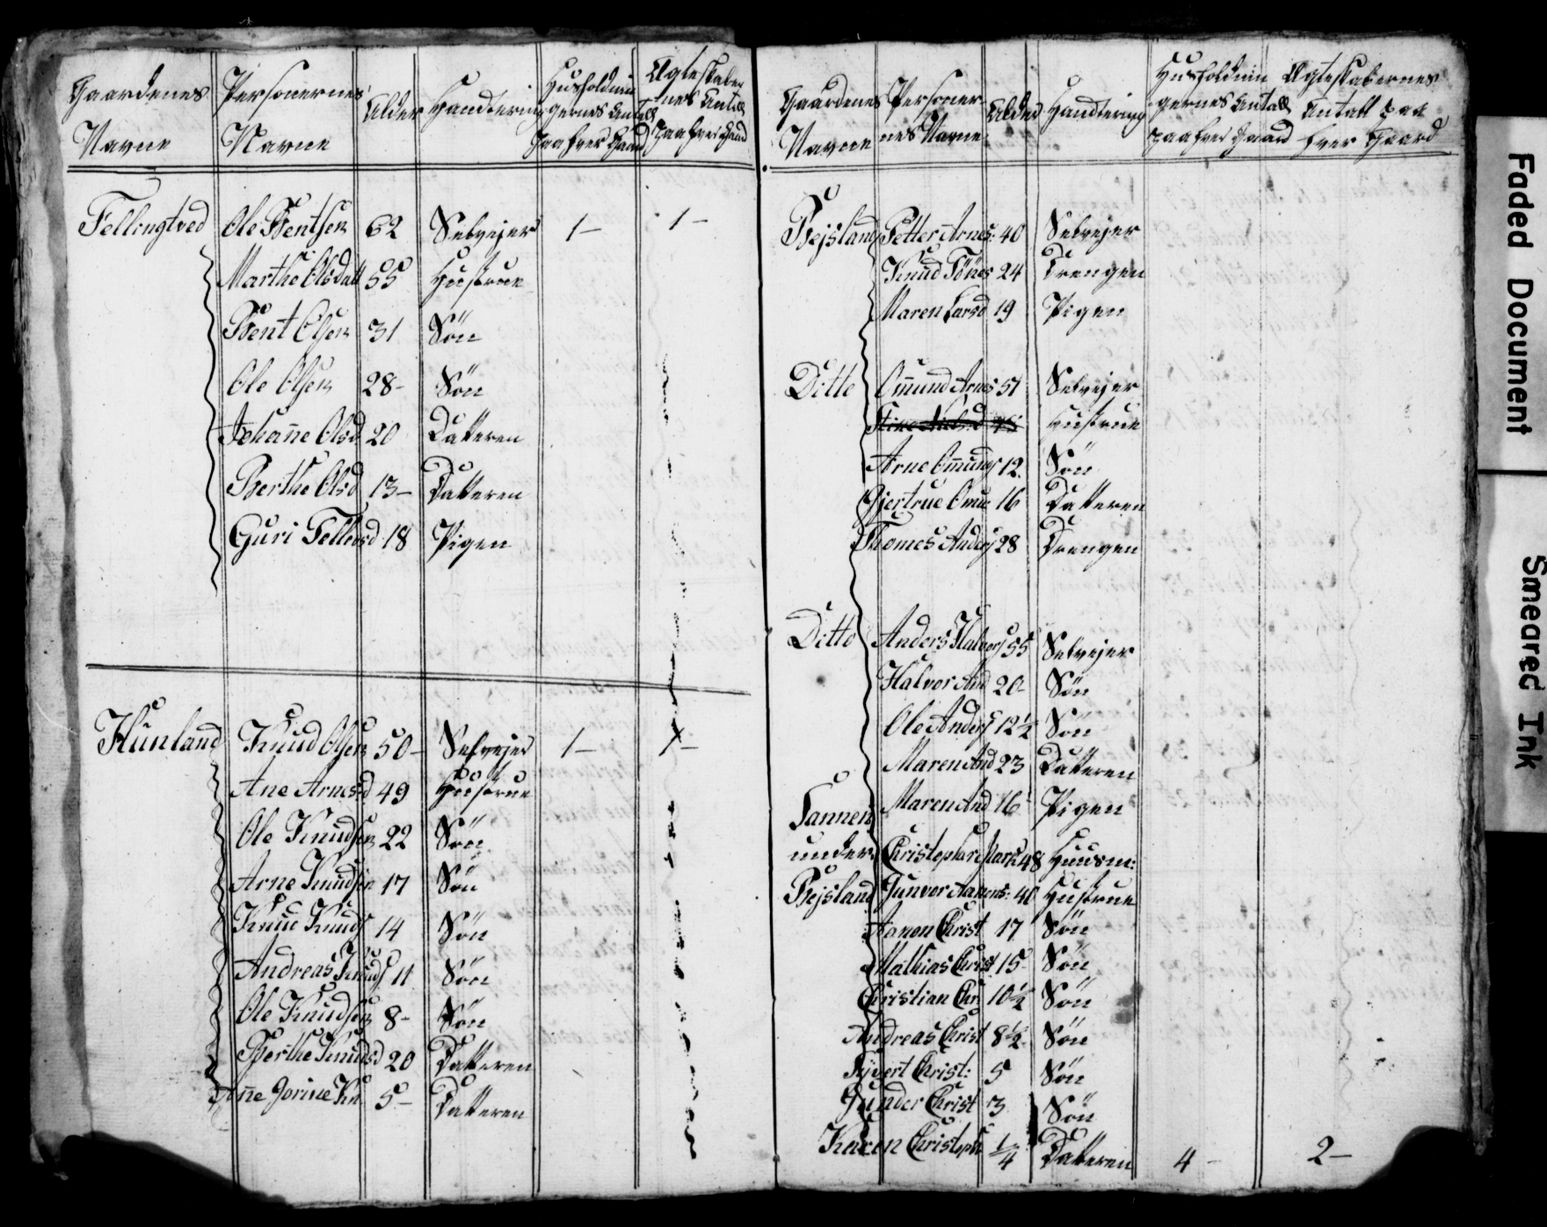 Gaardenes Navne | Personernes Navne | Alder | Handtering | Husholdnin gernes Antall paa hver Gaard | Ægteskaber nes Antall paa hver Gaard
Tellingtved Ole Bentsen 62 Selvejer 1 – 1 –
Marthe Olsdatt 55 Hustrue
Bent Olsen 31 Søn
Ole Olsen 28 – Søn
Johañe Olsd 20 Datteren
Berthe Olsd 13 – Datteren
Guri Tellevsd 18 Pigen
Hunland Knud Olsen 50 – Selvejer 1 – 1 –
Ane Arnesd 49 Hustrue
Ole Knudsen 22 Søn
Arne Knudsen 17 Søn
Knud Knuds 14 Søn
Andreas Knuds 11 Søn
Ole Knudsen 8 – Søn
Berthe Knudsd 20 Datteren
Añe Jorine Kn 5 – Datteren
Gaardenes Navne | Personer nes Navne | Alder | Handtering | Husholdnin gernes Antall paa hver Gaard | Ægteskabernes Antall paa hver Gaard
Bejsland Petter Arnes 40 Selvejer
Knud Tönes 24 Drengen
Maren Larsd 19 Pigen
Ditto Om̃und Arnes 51 Selvejer
Hustrue
Arne Om̃unds 12 Søn
Gjertrue Omu 16 Datteren
Thomes Anders 28 Drengen
Ditto Anders Halvors 55 Selvejer
Halvor And 20 – Søn
Ole Anders 12 ½ Søn
Maren And 23 Datteren
Maren And 16 Pigen
under Christopher 48 Huusm:
Bejsland Gunvor Aanons: 40 Hustrue
Aanon Christ 17 Søn
Mathias Christ 15 – Søn
Christian Chr 10 ½ Søn
Andreas Christ 8 ½ Søn
Sjvert Christ: 5 Søn
Gunder Christ 3 Søn
Karen Christoph ¼ Datteren 4 – 2 –
Faded Document
Smeared Ink